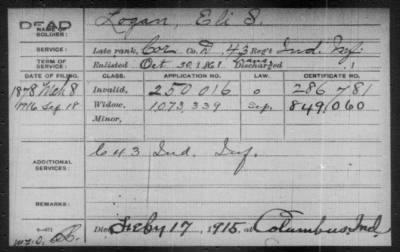 DEAD
NAME OF SOLDIER: Logan, Eli S.
SERVICE: Late rank, Cor Co. D 43 Reg't Ind Inf.
TERM OF SERVICE: Enlisted Oct 30, 1861 trans Discharged , 1
DATE OF FILING. CLASS. APPLICATION NO. CERTIFICATE NO.
1878 Mch 8 Invalid, 250016 0 286781
1916 Sep. 18 Widow, 1,073,339 849,060
Minor,
ADDITIONAL SERVICES: C 43 Ind. Inf.
REMARKS:
Died Feby 17, 1915, at Columbus, Ind